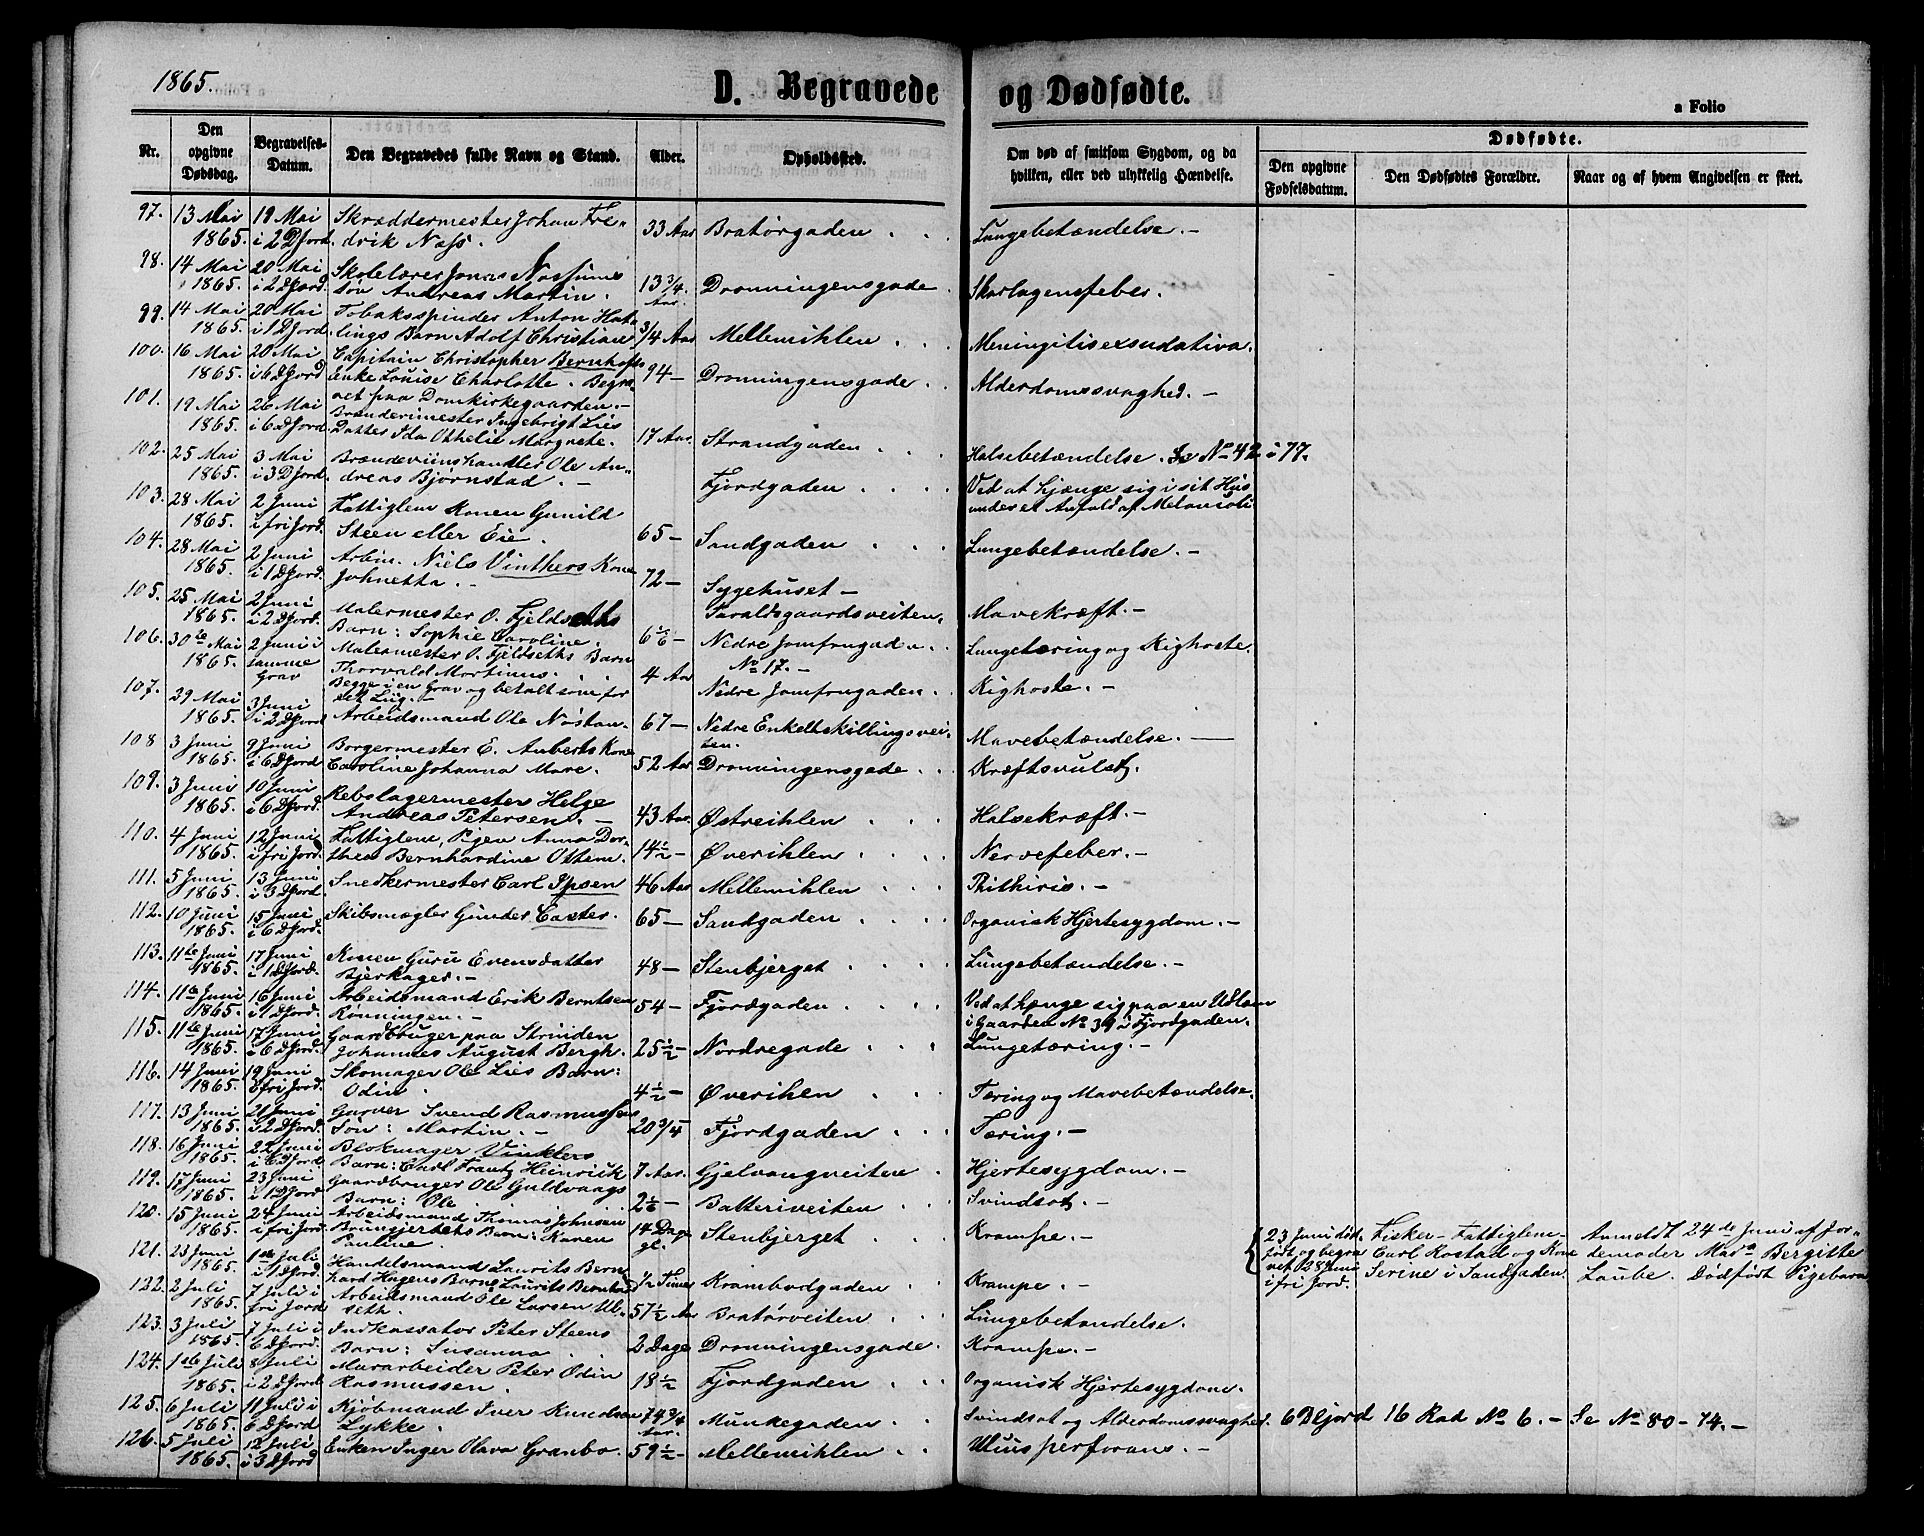 1865.
D. Begravede og Dødfødte.
a Folio
Nr. Den opgivne Dødsdag. Begravelses-Datum. Den Begravedes fulde Navn og Stand. Alder. Opholdssted. Om død af smitsom Sygdom, og da hvilken, eller ved ulykkelig Hændelse. Dødfødte. Den opgivne Fødselsdatum. Den Dødfødtes Forældre. Naar og af hvem Angivelsen er skeet.
97. 13 Mai 19 Mai Skræddermester Johan Fre-
1865. i 2 D Jord. drik Næss. 33 Aar Bratørgaden Lungebetændelse. -
98. 14 Mai 20 Mai Skolelærer Jonas
1865. i 2 D Jord. søn Andreas Martin. 13 3/4 Aar. Dronningensgade Skarlagensfeber.
99. 14 Mai 20 Mai Tobaksspinder Anton Hat-
1865. i 1 D Jord. lings Barn Adolf Christian 3/4 Aar Mellemihlen Meningitis exsudativa.
100. 16 Mai 20 Mai Capitain Christopher Bernhofts
1865. i 6 D Jord Enke Louise Charlotte. Begra- 94 - Dronningensgade Alderdomssvaghed. -
vet paa Domkirkegaarden. -
101. 19 Mai 26 Mai Brænderimester Ingebrigt Lies
1865. i 6 D Jord. Datter Ida Othelie Margrete. 17 Aar. Strandgaden Halsebetændelse. Se No 42 i 77.
102. 25 Mai 3 Mai Brændeviinshandler Ole An-
1865. i 3 D Jord. dreas Bjørnstad. - Fjordgaden Ved at hjænge sig i sit Hus
under et Anfald af Melancoli
103. 28 Mai 2 Juni Fattiglem Konen Gunild
1865. i fri Jord. Steen eller Eie. 65 - Sandgaden Lungebetændelse. -
104. 28 Mai 2 Juni Arbm. Niels Vinthers Kone
1865. i 1 D Jord. Johnetta. - 72 - Sygehuset -
105. 25 Mai 2 Juni Malermester O. Fjeldseths Taraldsgaardsveiten. Mavekræft. -
1865. i 2 D Jord. Barn: Sophie Caroline. 6 1/6 - Nedre Jomfrugaden Lungetæring og Kighoste.
106. 30te Mai 2 Juni i Malermester O. Fjeldseths Barn No 17. -
1865. samme Grav Thorvald Martinus. 4 Aar Nedre Jomfrugaden Kighoste. -
Begge i en Grav og betalt som for
et Liig. -
107. 29 Mai 3 Juni
1865. i 2 D Jord Arbeidsmand Ole Nøstan. 67 - Nedre Enkeltskillingsvei-
ten. Mavebetændelse. -
108 3 Juni 9 Juni Borgermester E. Auberts Kone
1865. i 6 D Jord Caroline Johanna Mare. 52 Aar Dronningensgade Kræftsvulst.
109. 3 Juni 10 Juni Rebslagermester Helge
1865. i 6 D Jord. Andreas Petersen. - 43 Aar. Østreihlen Halsekræft. -
110. 4 Juni 12 Juni Fattiglem, Pigen Anna Dor-
1865. i fri Jord. thea Bernhardine Ottem. 14 1/2 - Øverihlen Nervefeber. -
111. 5 Juni 13 Juni Snedkermester Carl Ipsen 46 Aar Mellemihlen Phthisis. -
1865. i 3 D Jord.
112. 10 Juni 15 Juni Skibsmægler Gunder Caster. 65 - Sandgaden Organisk Hjertesygdom. -
1865. i 6 D Jord.
113. 11te Juni 17 Juni Konen Guru Evensdatter
1865. i 1 D Jord. Bjerkager. - 48 - Stenbjerget Lungebetændelse. -
114. 11te Juni 16 Juni Arbeidsmand Erik Berntsen 54 - Fjordgaden Ved at hænge sig paa en
1865. i 1 D Jord. Rønningen. - i Gaarden No 39 i Fjordgaden.
115. 11te Juni 17 Juni Gaardbruger paa Strinden
1865. i 6 D Jord. Johannes August Bergh. 25 1/2 - Nordregade Lungetæring. -
116. 14 Juni 19 Juni Skomager Ole Lies Barn:
1865. i fri Jord. Odin. 4 1/2 - Øverihlen Tæring og Mavebetændelse.
117. 13 Juni 21 Juni Garver Svend Rasmussens
1865. i 2 D Jord. Søn: Martin. - 20 3/4 Fjordgaden Tæring. -
118. 16 Juni 22 Juni Blokmager Vinklers
1865. i 6 D Jord. Barn: Carl Frantz Heinrick 7 Aar. Gjelvangveiten Hjertesygdom. -
119. 17 Juni 23 Juni Gaardbruger Ole Guldvaags
1865. i 1 D Jord Barn: Ole 2 1/6 - Batteriveiten Svindsot. -
120. 15 Juni 24 Juni Arbeidsmand Thomas Johnsen
1865. i fri Jord. Brungjertets Barn: Karen Pauline. 14 Dage gl. Stenbjerget Krampe. - 23 Juni død- født og begra vet 28 Juni i fri Jord. Fisker - Fattiglem - Carl Rostad og Kone Serine i Sandgaden. Anmeldt 24de Juni af Jor- demoder Mad. Bergitte Laube. Dødfødt Pigebarn
121. 23 Juni 1ste Juli Handelsmand Laurits Bern
1865. i 1 D Jord. hard Hagens Barn: Laurits Bernhard 1/2 Time Krambodgaden Krampe.
122. 2 Juli 7 Juli i Arbeidsmand Ole Larsen Ul-
1865. fri Jord seth. 57 1/2 Aar Bratørveiten Lungebetændelse.
123. 3 Juli 7 Juli i Indkassator Peter Steens
1865. 6 D Jord. Barn: Susanna. 2 Dage Dronningensgade. Krampe. -
124. 1ste Juli 8 Juli Murarbeider Peter Odin
1865. i 2 D Jord Rasmussen. 18 1/2 Fjordgaden Organisk Hjertesygdom.
125. 6 Juli 11 Juli i Kjøbmand Iver Knudsen
1865. 6 D Jord Lykke. 74 3/4 Aar. Munkegaden Svindsot og Alderdomssvaghed. 6 D Jord 16 Rad No 6. - Se No 80 - 74. -
126. 5 Juli 12 Juli Enken Inger Olava Granbo. 59 1/2 - Mellemihlen Ulcus perforans. -
1865. i 3 D Jord